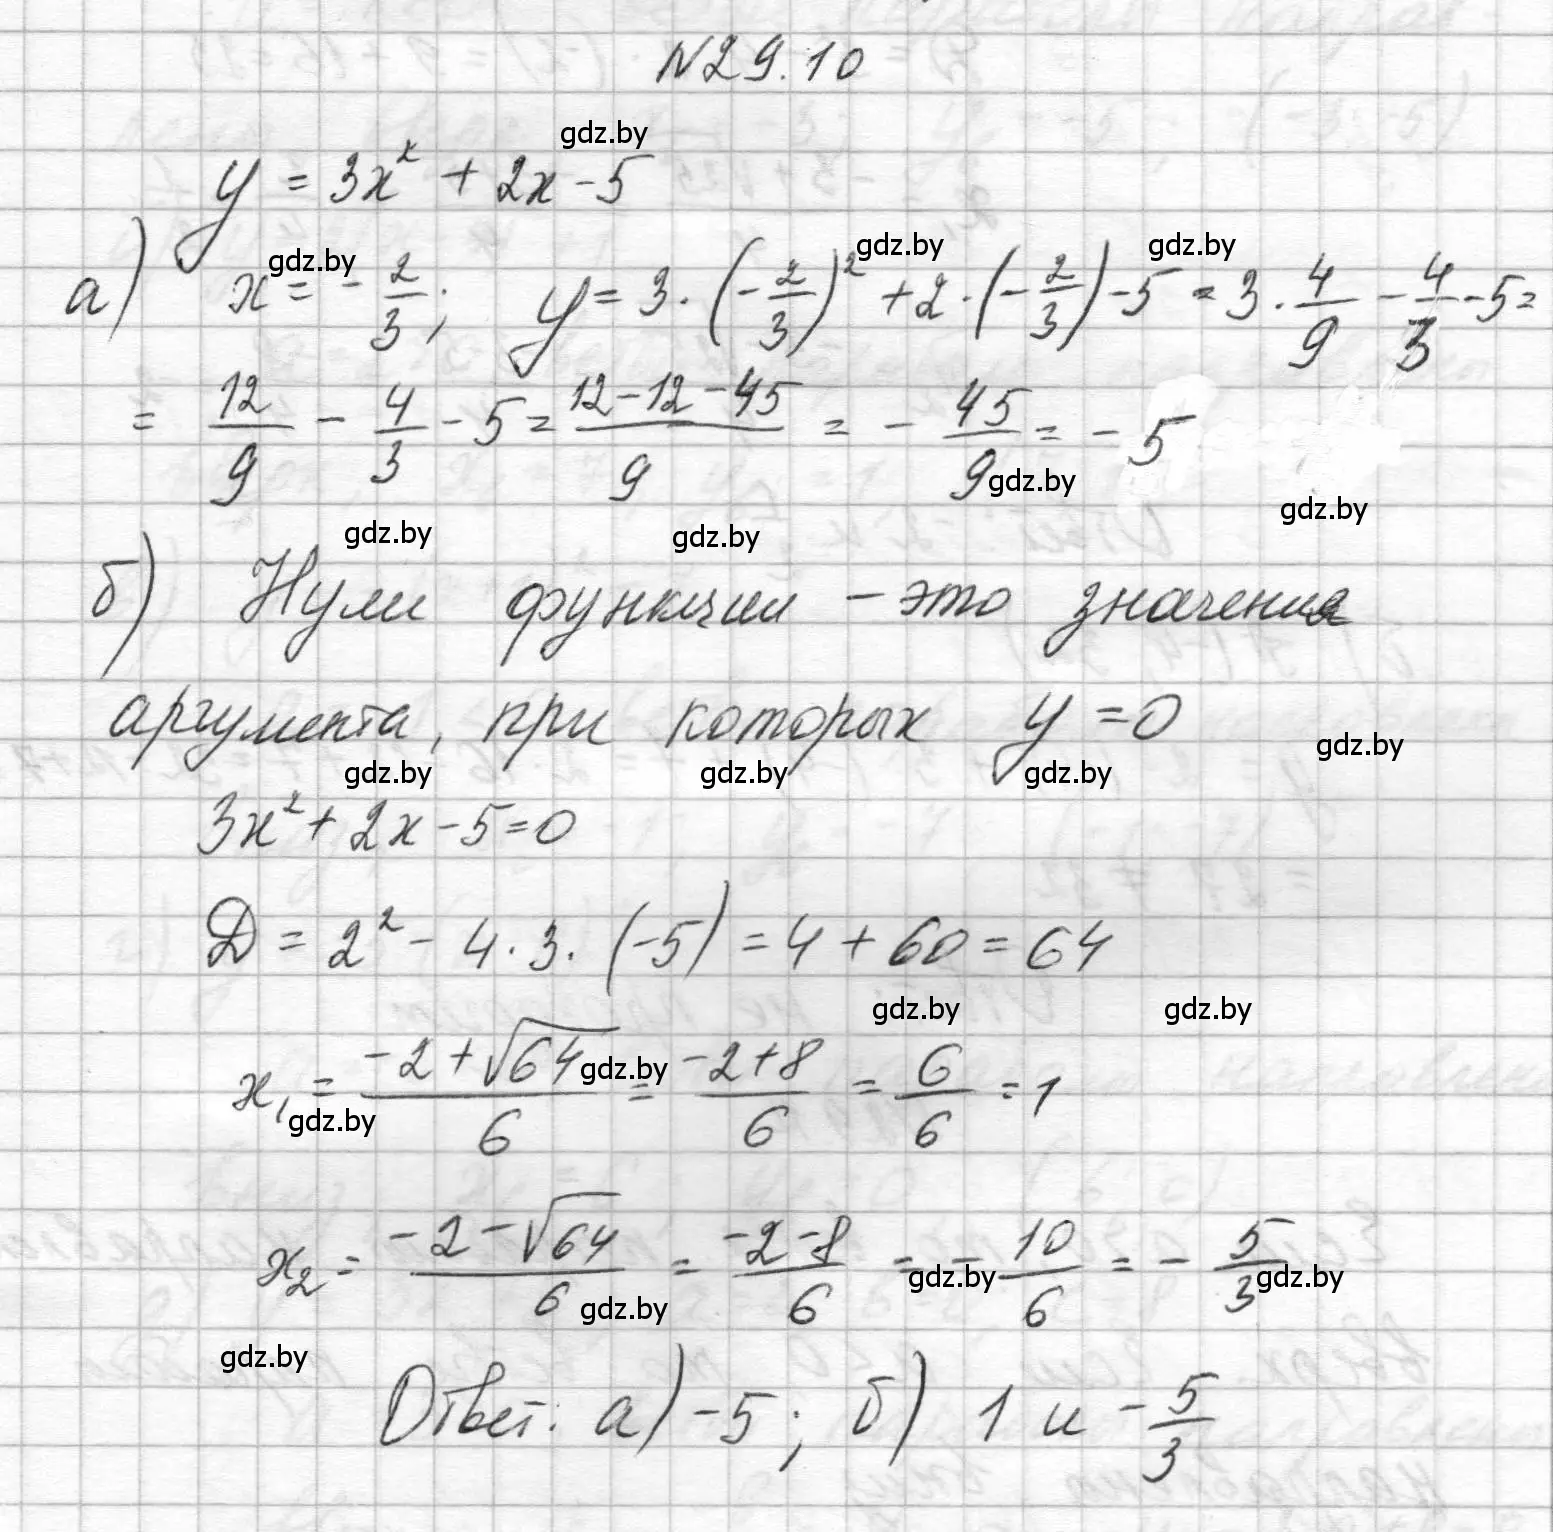 N29.10
gdz.by
y = 3x² + 2x - 5
gdz.by gdz.by gdz.by
а) x = -2/3; y = 3·(-2/3)² + 2·(-2/3) - 5 = 3·4/9 - 4/3 - 5 =
= 12/9 - 4/3 - 5 = (12-12-45)/9 = -45/9 = -5
gdz.by gdz.by
gdz.by gdz.by
б) Нули функции - это значения
аргумента, при которых y = 0
gdz.by gdz.by gdz.by gdz.by
3x² + 2x - 5 = 0
D = 2² - 4·3·(-5) = 4 + 60 = 64
gdz.by gdz.by
x₁ = (-2+√64)/6 = (-2+8)/6 = 6/6 = 1
gdz.by gdz.by
x₂ = (-2-√64)/6 = (-2-8)/6 = -10/6 = -5/3
gdz.by gdz.by gdz.by
gdz.by
Ответ: а) -5; б) 1 и -5/3